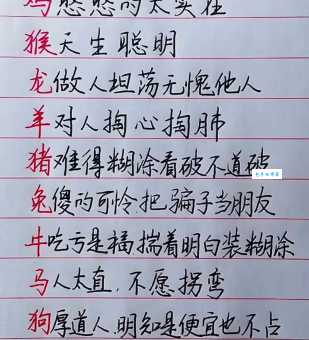 鸡憨憨的太实在
猴天生聪明
龙做人坦荡无愧他人
羊对人掏心掏肺
猪难得糊涂看破不道破
兔傻的可怜.把骗子当朋友
牛吃亏是福.揣着明白装糊涂
马人太直.不愿拐弯
狗厚道人.明知是便宜也不占